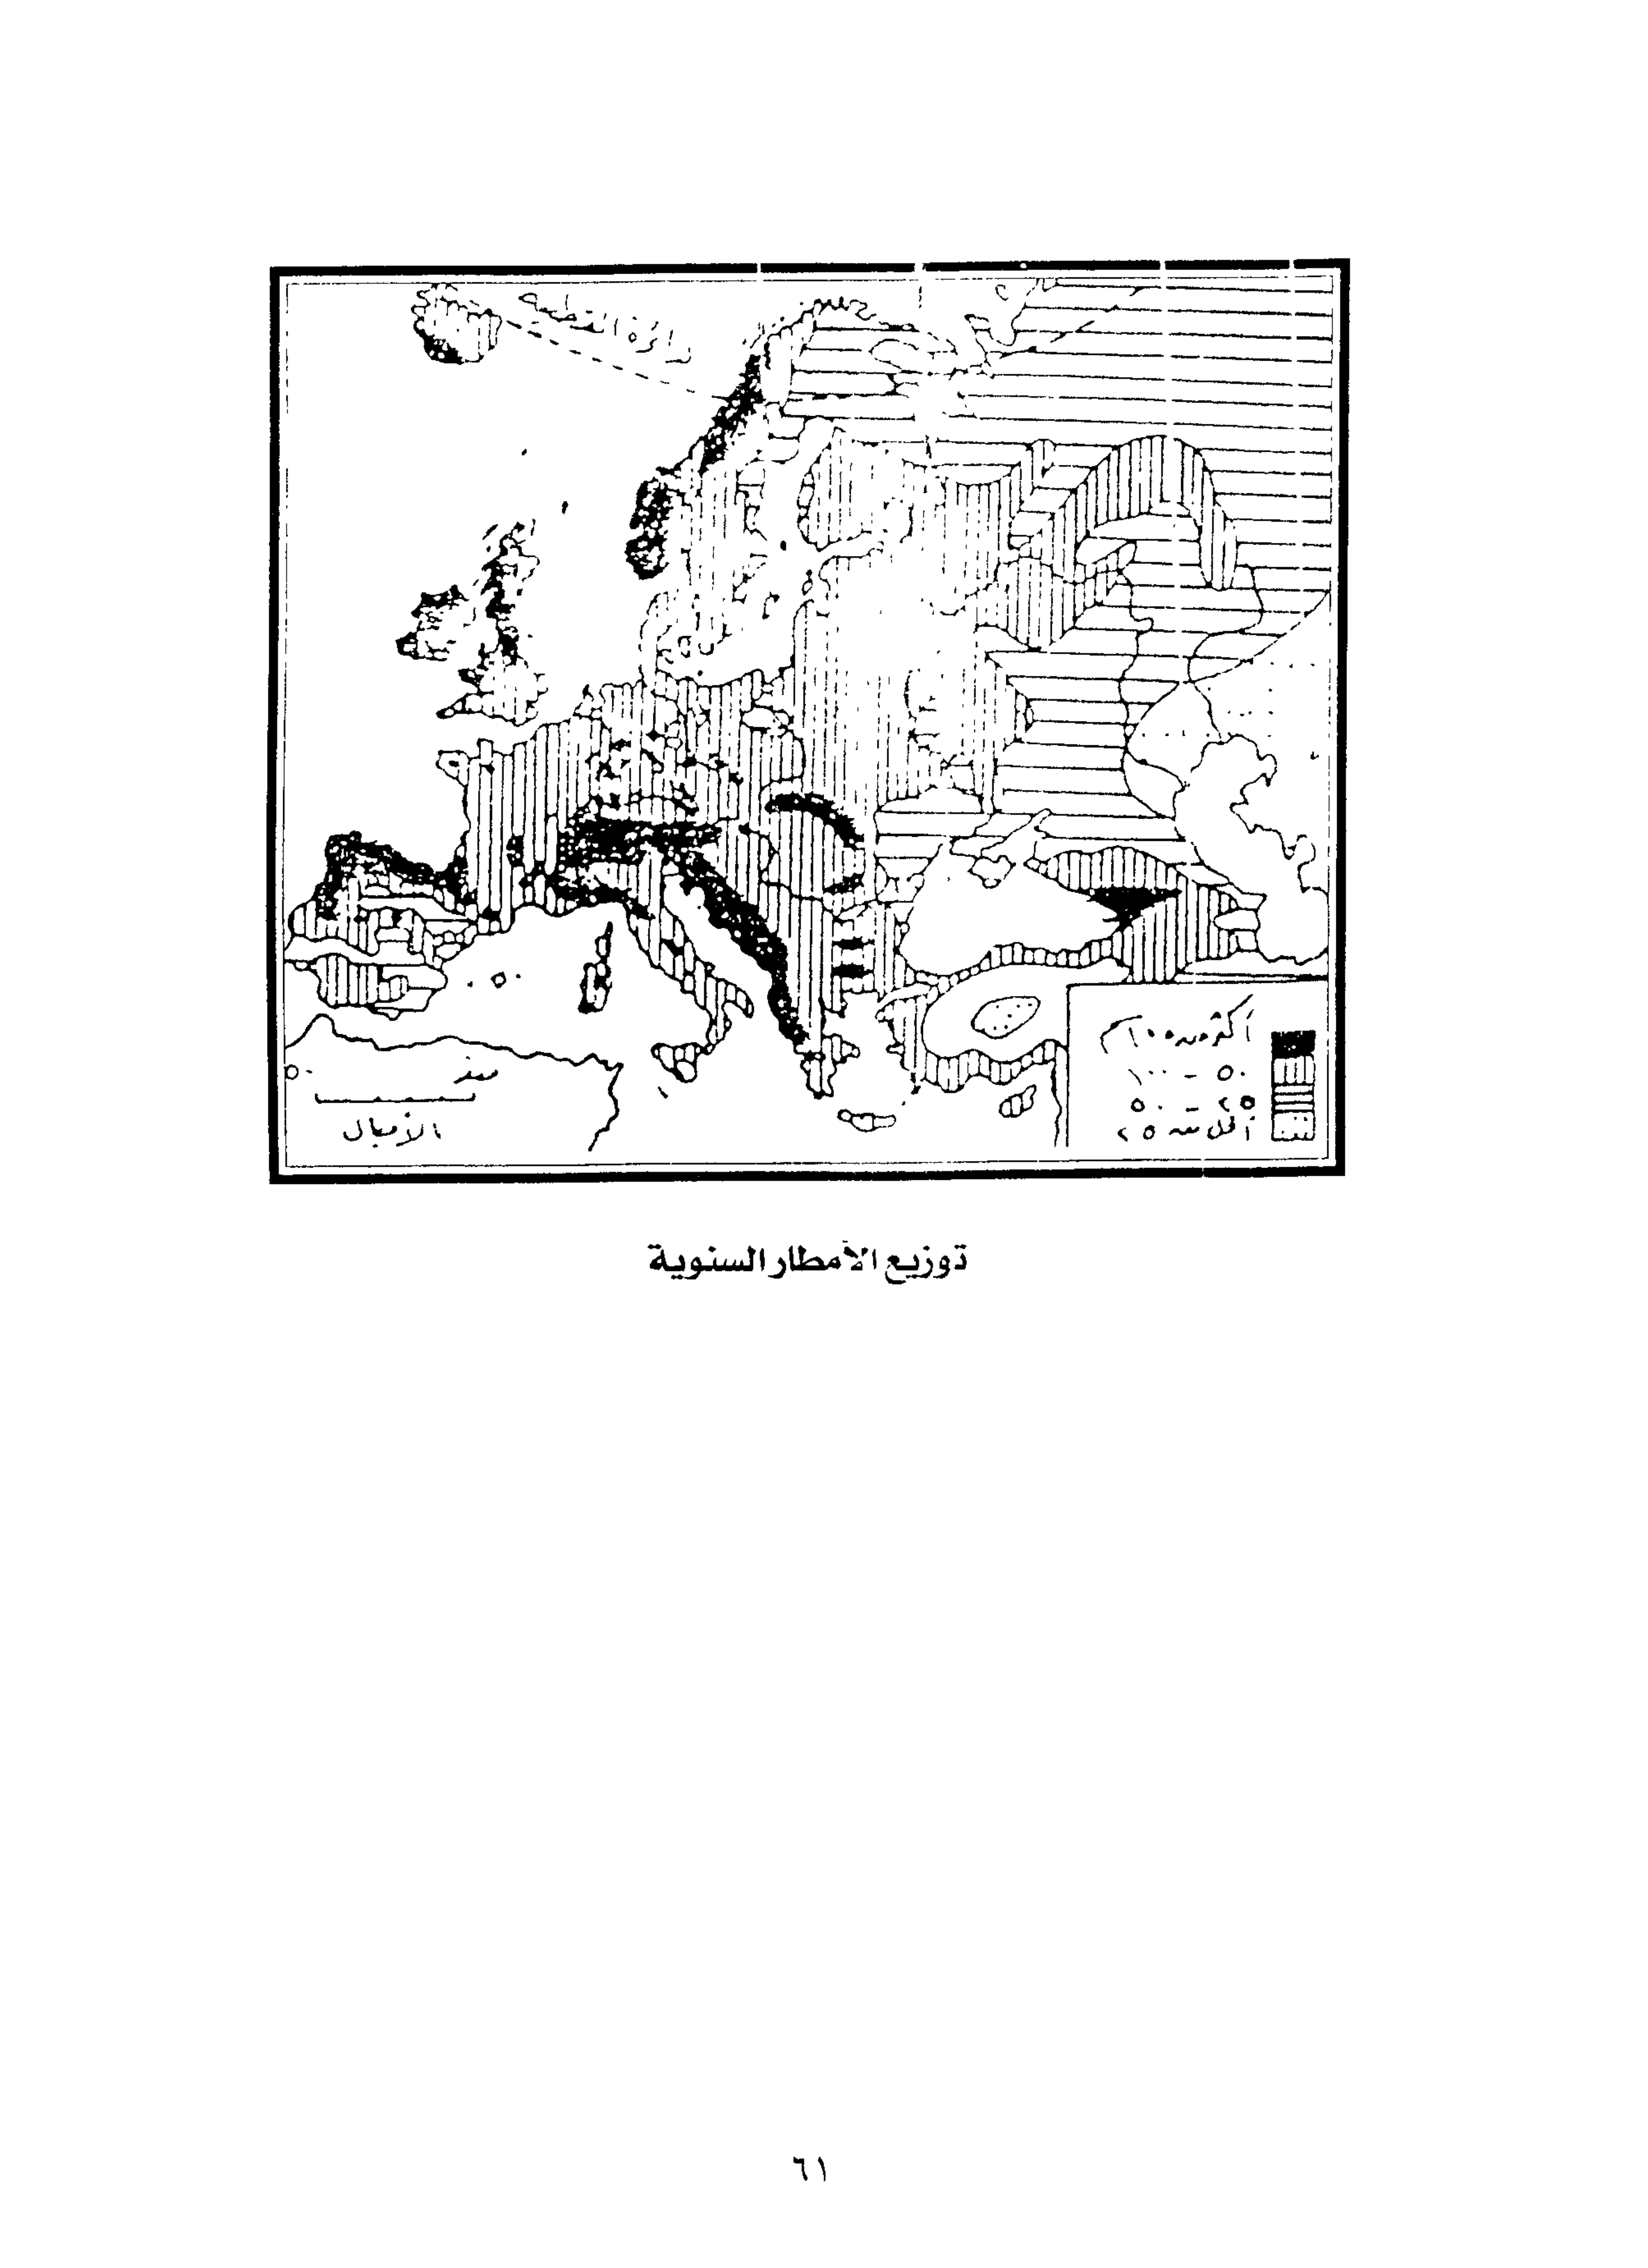 الدائرة القطبية
أكثر من ١٠٠
٥٠ - ١٠٠
٢٥ - ٥٠
أقل من ٢٥
الأميال
توزيع الأمطار السنوية
٦١